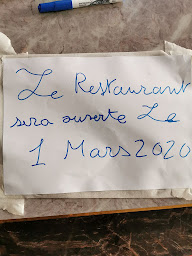 Le Restaurant
sera ouverte Le
1 Mars 2020